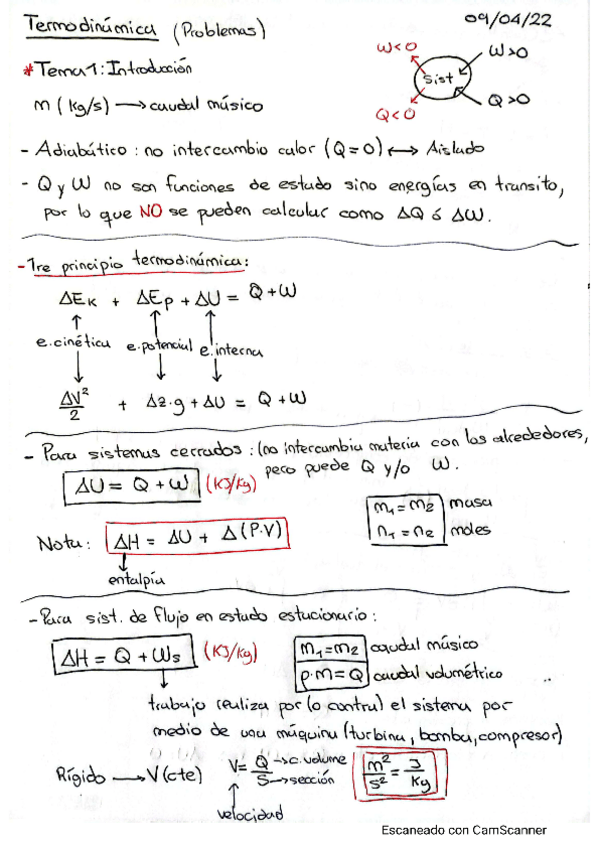 Termodinámica (Problemas) 09/04/22
*Tema 1: Introducción
W<0 W>0
Sist
Q<0 Q>0
m (kg/s) → caudal músico
- Adiabático: no intercambio calor (Q=0) ↔ Aislado
- Q y W no son funciones de estado sino energías en transito,
por lo que NO se pueden calcular como ΔQ ó ΔW.
- 1re principio termodinámica:
ΔEk + ΔEp + ΔU = Q+W
e.cinética e.potencial e.interna
ΔV²/2 + Δz·g + ΔU = Q + W
- Para sistemas cerrados: (no intercambia materia con los alrededores,
pero puede Q y/o W.
ΔU = Q + W (KJ/Kg)
m₁ = m₂ masa
n₁ = n₂ moles
Nota: ΔH = ΔU + Δ(P·V)
entalpía
- Para sist. de flujo en estado estacionario:
ΔH = Q + Ws (KJ/Kg)
m₁=m₂ caudal músico
ρ·m=Q caudal volumétrico
trabajo realiza por (o contra) el sistema por
medio de una máquina (turbina, bomba, compresor)
Rígido → V(cte) V = Q/S → c. volume → sección m²/s² = J/Kg
velocidad
Escaneado con CamScanner